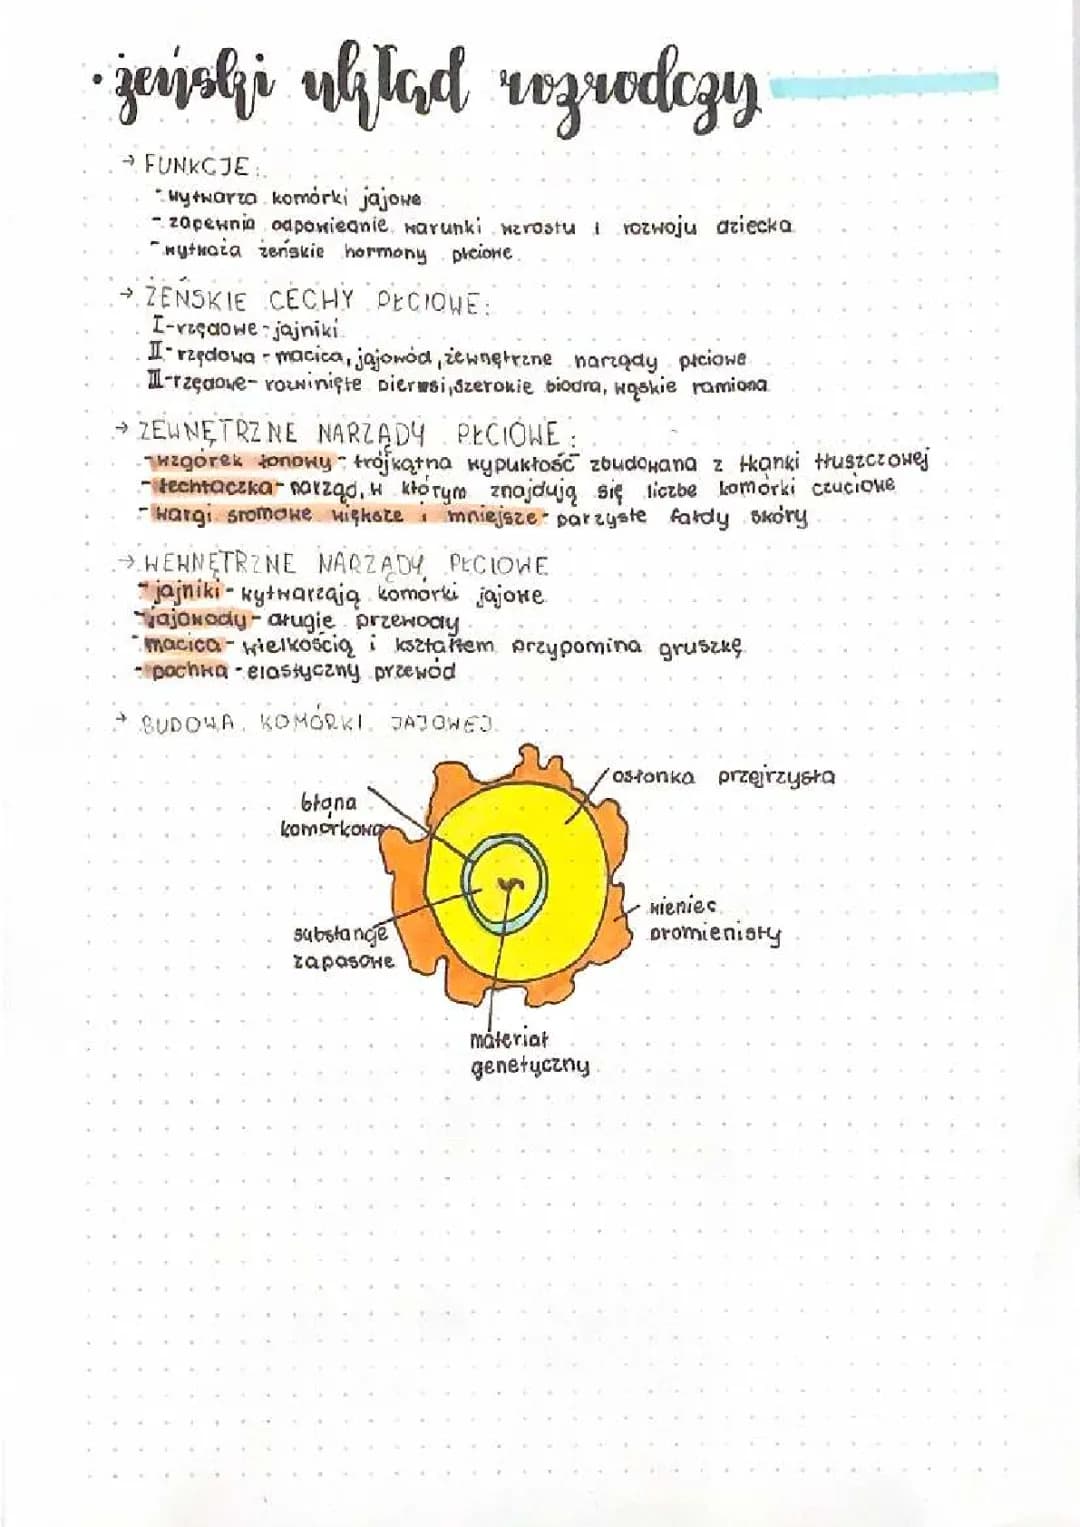 • żeński układ rozrodczy
→ FUNKCJE:
- wytwarza komórki jajowe
- zapewnia odpowiednie warunki wzrostu i rozwoju dziecka
- wytważa żeńskie hormony płciowe
→ ŻEŃSKIE CECHY PŁCIOWE:
I-rzędowe - jajniki
II-rzędowa - macica, jajowód, zewnętrzne narządy płciowe
III-rzędowe - rozwinięte piersi, szerokie biodra, wąskie ramiona
→ ZEWNĘTRZNE NARZĄDY PŁCIOWE:
- wzgórek łonowy - trójkątna wypukłość zbudowana z tkanki tłuszczowej
- łechtaczka - narząd, w którym znajdują się liczbe komórki czuciowe
- wargi sromowe większe i mniejsze - parzyste fałdy skóry
→ WEWNĘTRZNE NARZĄDY PŁCIOWE
- jajniki - wytwarzają komórki jajowe
- jajowody - długie przewody
- macica - wielkością i kształtem przypomina gruszkę
- pochwa - elastyczny przewód
→ BUDOWA KOMÓRKI JAJOWEJ
osłonka przejrzysta
błona
komórkowa
wieniec
promienisty
substancje
zapasowe
materiał
genetyczny